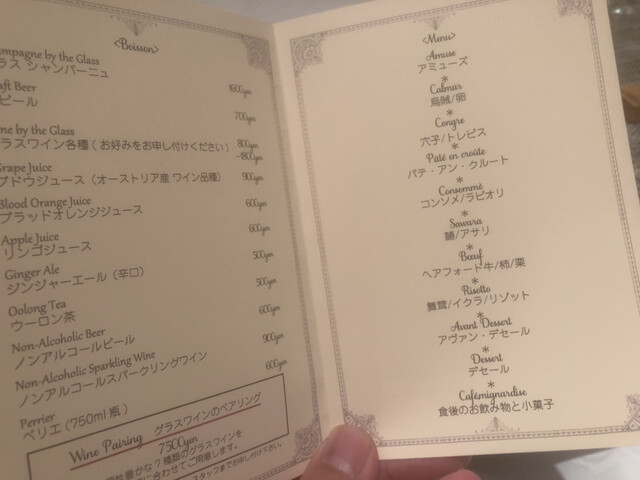 <Boisson>
mpagne by the Glass
ラス シャンパーニュ
1600yen
aft Beer
ビール
700yen
ne by the Glass
ラスワイン各種 ( お好みをお申し付けください )
800yen
~1800yen
Grape Juice
ブドウジュース（オーストリア産 ワイン品種）
900yen
Blood Orange Juice
ブラッドオレンジジュース
600yen
Apple Juice
リンゴジュース
600yen
Ginger Ale
ジンジャーエール（辛口）
500yen
Oolong Tea
ウーロン茶
500yen
Non-Alcoholic Beer
ノンアルコールビール
600yen
Non-Alcoholic Sparkling Wine
ノンアルコールスパークリングワイン
900yen
Perrier
ペリエ (750ml 瓶 )
600yen
Wine Pairing グラスワインのペアリング
7500yen
豊かな 7 種類のグラスワインを
に合わせてご用意します。
スタッフまでお申し付け下さい。
<Menu>
Amuse
アミューズ
*
Calmar
烏賊/卵
*
Congre
穴子/トレビス
*
Pâté en croûte
パテ・アン・クルート
*
Consommé
コンソメ/ラビオリ
*
Sawara
鰆/アサリ
*
Bœuf
ヘアフォード牛/柿/栗
*
Risotto
舞茸/イクラ/リゾット
*
Avant Dessert
アヴァン・デセール
*
Dessert
デセール
*
Cafémignardise
食後のお飲み物と小菓子